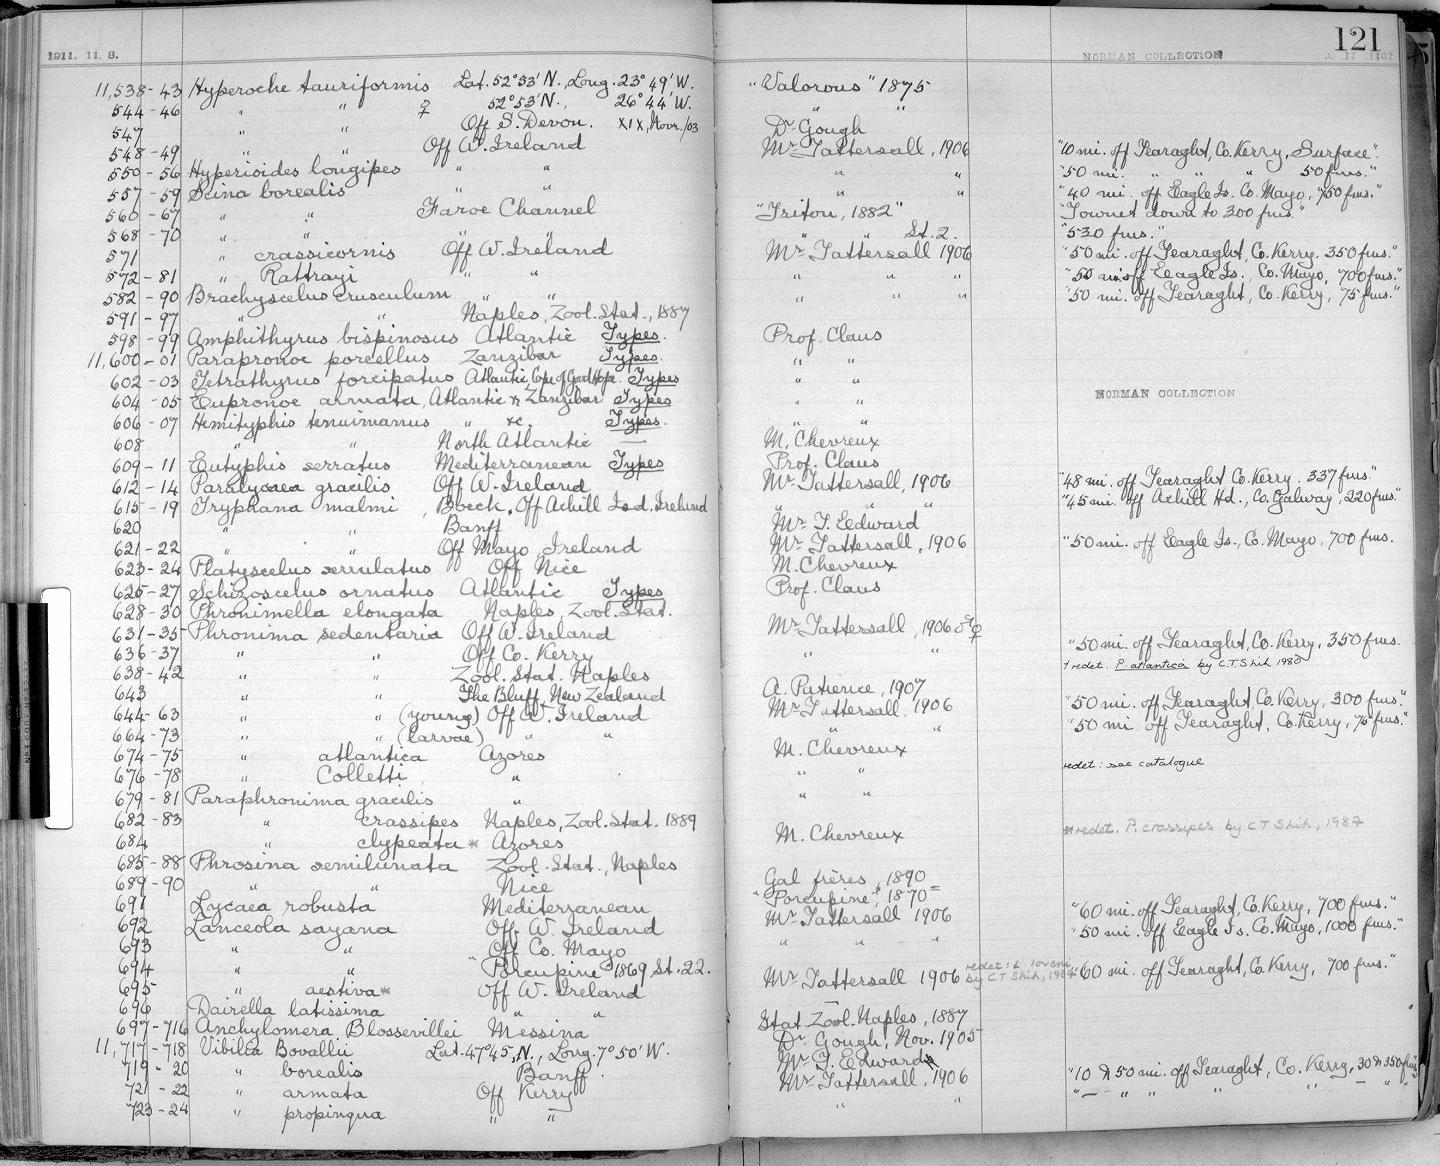 1911. 11. 8.
NORMAN COLLECTION
121
11,538-43 Hyperoche tauriformis Lat. 52°53'N., Long. 23°49'W. "Valorous" 1875
544-46 " " ♀ 52°53'N., 26°44'W. " "
547 " " Off S. Devon. XIX, Novr./03 Dr Gough
548-49 " " Off W. Ireland Mr Tattersall, 1906 "10 mi. off Tearaght, Co. Kerry, Surface".
550-56 Hyperioides longipes " " " " "50 mi. " " " 50 fms."
557-59 Scina borealis " " " " "40 mi. off Eagle Is. Co. Mayo, 750 fms."
560-67 " " Faroe Channel "Triton, 1882" "Townet down to 300 fms."
568-70 " " " " " " St. 2. "530 fms."
571 " crassicornis Off W. Ireland Mr Tattersall 1906 "50 mi. off Tearaght, Co. Kerry. 350 fms."
572-81 " Rattrayi " " " " " "50 mi. off Eeagle Is., Co. Mayo, 700 fms."
582-90 Brachyscelus crusculum " " " " " "50 mi. off Tearaght, Co. Kerry, 75 fms."
591-97 " " Naples, Zool. Stat., 1887
598-99 Amphithyrus bispinosus Atlantic Types. Prof. Claus
11,600-01 Parapronoe parcellus Zanzibar Types. " "
602-03 Tetrathyrus forcipatus Atlantic, Cape of Good Hope. Types " "
NORMAN COLLECTION
604-05 Eupronoe armata, Atlantic & Zanzibar Types " "
606-07 Hemityphis tenuimanus " &c. Types. " "
608 " " North Atlantic — M. Chevreux
609-11 Eutyphis serratus Mediterranean Types Prof. Claus
612-14 Paralycaea gracilis Off W. Ireland Mr Tattersall, 1906 "48 mi. off Tearaght Co. Kerry. 337 fms."
615-19 Tryphana malmi, Boeck. Off Achill Isd. Ireland " " " "45 mi. off Achill Hd., Co. Galway, 220 fms."
620 " " Banff Mr T. Eedward
621-22 " " Off Mayo, Ireland Mr Tattersall, 1906 "50 mi. off Eagle Is., Co. Mayo, 700 fms.
623-24 Platyscelus serrulatus Off Nice M. Chevreux
625-27 Schizoscelus ornatus Atlantic Types Prof. Claus
628-30 Phronimella elongata Naples, Zool. Stat.
631-35 Phronima sedentaria Off W. Ireland Mr Tattersall, 1906 ♂ ♀ "50 mi. off Tearaght, Co. Kerry, 350 fms.
636-37 " " Off Co. Kerry " " 1 redet. P. atlantica by C.T. Shih 1980
638-42 " " Zool. Stat. Naples
643 " " The Bluff, New Zealand A. Patience, 1907
644-63 " " (young) Off W. Ireland Mr Tattersall, 1906 "50 mi. off Tearaght, Co. Kerry, 300 fms."
664-73 " " (larvae) " " " " "50 mi. off Tearaght, Co. Kerry, 75 fms."
674-75 " atlantica Azores M. Chevreux
676-78 " Colletti " " " redet: see catalogue
679-81 Paraphronima gracilis " " "
682-83 " crassipes Naples, Zool. Stat. 1889
684 " clypeata * Azores M. Chevreux * redet. P. crassipes by C T Shih, 1987
685-88 Phrosina semilunata Zool. Stat., Naples
689-90 " " Nice Gal frères, 1890
691 Lycaea robusta Mediterranean "Porcupine", 1870
692 Lanceola sayana Off W. Ireland Mr Tattersall 1906 "60 mi. off Tearaght, Co. Kerry, 700 fms."
693 " " Off Co. Mayo " " " "50 mi. off Eagle Is. Co. Mayo, 1000 fms."
694 " " "Porcupine" 1869, St. 22.
695 " aestiva* Off W. Ireland Mr Tattersall 1906 redet: L. loveni by C T Shih, 1987 "60 mi. off Tearaght, Co. Kerry, 700 fms."
696 Dairella latissima " "
697-716 Anchylomera Blossevillei Messina Stat. Zool. Naples, 1887
11,717-718 Vibilia Bovallii Lat. 47°45,N., Long. 7°50'W. Dr Gough, Nov. 1905
719-20 " borealis Banff. Mr T. Edwards
721-22 " armata Off Kerry Mr Tattersall, 1906 "10 & 50 mi. off Tearaght, Co. Kerry, 30 & 350 fms."
723-24 " propinqua " " " " "— " " " " — " "